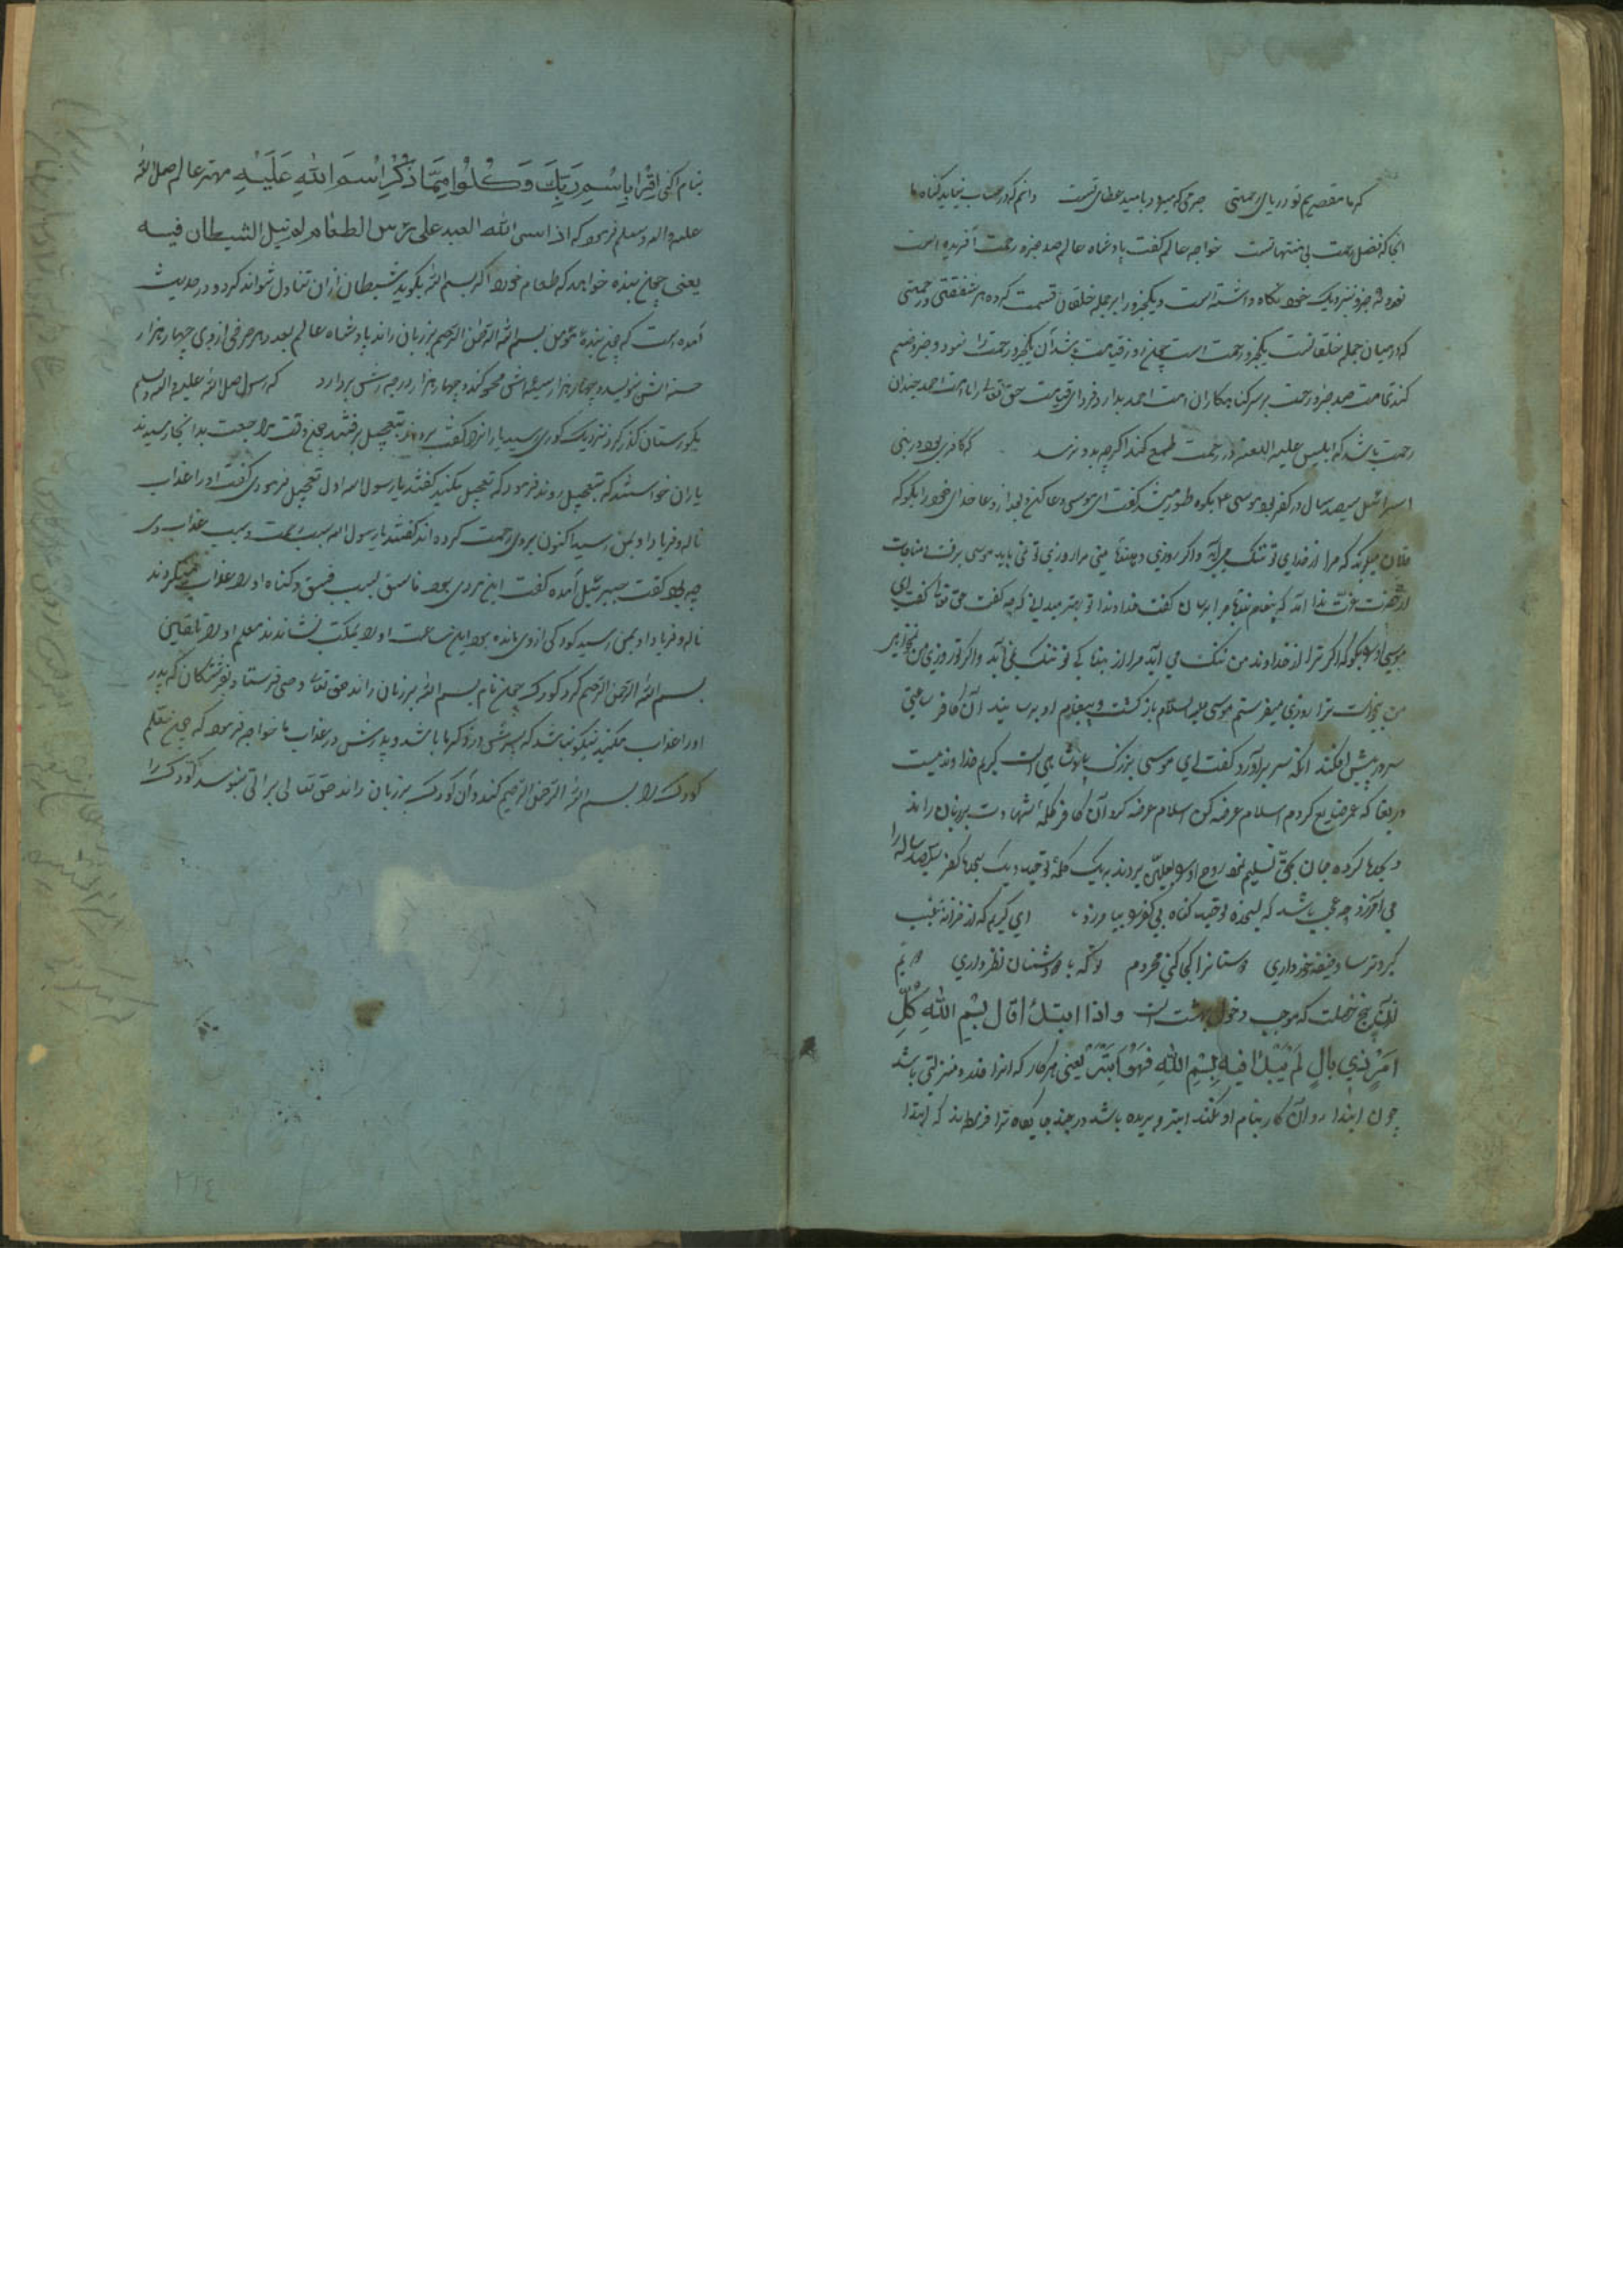 که ما مقصریم تو دریای رحمتی جرمی که میرود بامید عطای تست دانم که در حساب نیاید گناه ما
انجا که فضل رحمت بی منتهای تست خواجه عالم گفت پادشاه عالم صد جزو رحمت آفریده است
نود و نه جزو نزدیک خود نگاه داشته است و یکجزو را بر جمله خلقان قسمت کرده هر شفقتی و رحمتی
که در میان جمله خلقانست یکجزو رحمت است چون روز قیامت باشد آن یکجزو رحمت را نود و نه جزو ضم
کند تمامت صد جزو رحمت بر سر کناهکاران امت احمد بدارد فردای قیامت حق تعالی را با امت احمد چندان
رحمت باشد که ابلیس علیه اللعنه در رحمت طمع کند اگرچه بدو نرسد که کافری بود در بنی
اسرائیل سیصد سال در کفر بود موسی ۴ بکوه طور میشد گفت ای موسی دعا کنی و بعد از دعا خدای خود را بگو که
فلان میگوید که مرا از خدای تو ننگ می آید و اگر روزی دهنده منی مرا روزی تو نمی باید موسی برفت و مناجات
از حضرت عزت ندا آمد که پیغام بندهٔ مرا برسان گفت خداوندا تو بهتر میدانی که چه گفت حق تعالی گفت ای
موسی او را بگو که اگر ترا از خداوند من ننگ می آید مرا از بندگی تو ننگ نمی آید و اگر تو روزی من نخواهی
من بیخواست ترا روزی میفرستم موسی علیه السلام باز گشت و پیغام او برسانید آن کافر ساعتی
سر در پیش افکند آنکه سر برآورد گفت ای موسی بزرگ پادشاهی است کریم خداوندیست
دریغا که عمر ضایع کردم اسلام عرضه کن اسلام عرضه کرد آن کافر کلمهٔ شهادت بر زبان راند
و سجده کرده جان بحق تسلیم نمود روح او را بعلیین بردند به یک کلمهٔ توحید و یک سجده کفر سیصد ساله را
می آمرزد چه عجب باشد که گناه بی کفر بیامرزد ای کریمی که از خزانه غیب
گبر و ترسا وظیفه خور داری دوستانرا کجا کنی محروم تو که با دشمنان نظر داری
از آن پنج خصلت که موجب دخول بهشت است و اذا ابتدأ قال بِسْمِ اللهِ كُلُّ
اَمْرٍ ذِي بالٍ لَمْ يُبْدَأ فيهِ بِبِسْمِ اللهِ فَهُوَ اَبْتَرُ یعنی هر کار که انرا قدر و منزلتی باشد
چون ابتدا در آن کار بنام او نکند ابتر و بریده باشد در چند جایگاه ترا فرمودند که ابتدا
بنام ما کنی اِقْرَا بِاسْمِ رَبِّكَ وَكُلُوا مِمَّا ذُكِرَ اسْمَ اللهِ عَلَيْهِ مهتر عالم صلی الله
علیه و اله و سلم فرمود که اذا سمی الله العبد علی رس الطعام لم ینل الشیطان فیه
یعنی چون بنده خواهد که طعام خورد اگر بسم الله بگوید شیطان از آن تناول نتواند کرد و در حدیث
آمده است که چون بندهٔ مؤمن بسم الله الرحمن الرحیم بر زبان راند پادشاه عالم بعدد هر حرفی از وی چهار هزار
حسنه اش نویسد و چهار هزار سیئه اش محو کند و چهار هزار درجه اش بردارد که رسول صلی الله علیه و اله و سلم
بگورستان گذر کرد نزدیک گوری رسید یارانرا گفت بتعجیل برفتند چون وقت مراجعت بدانجا رسیدند
یاران خواستند که بتعجیل روند فرمود که تعجیل مکنید گفتند یا رسول الله اول تعجیل فرمودی گفت او را عذاب
ناله و فریاد او بمن رسید اکنون بروی رحمت کرده اند گفتند یا رسول الله سبب رحمت و سبب عذاب وی
چه بود گفت جبرئیل آمده گفت این مردی بود فاسق بسبب فسق و گناه او را عذاب میکردند
ناله و فریاد او بمن رسید کودکی از وی مانده بود این ساعت او را بمکتب نشاندند معلم او را تلقین
بسم الله الرحمن الرحیم کرد کودک چون نام بسم الله بر زبان راند حق تعالی وحی فرستاد بفرشتگان که پدر
او را عذاب مکنید نیکو نباشد که پسرش در ذکر ما باشد و پدرش در عذاب ما خواجه فرمود که چون معلم
کودک را بسم الله الرحمن الرحیم کند و آن کودک بر زبان راند حق تعالی براتی بنویسد کودک را
۲۲٤